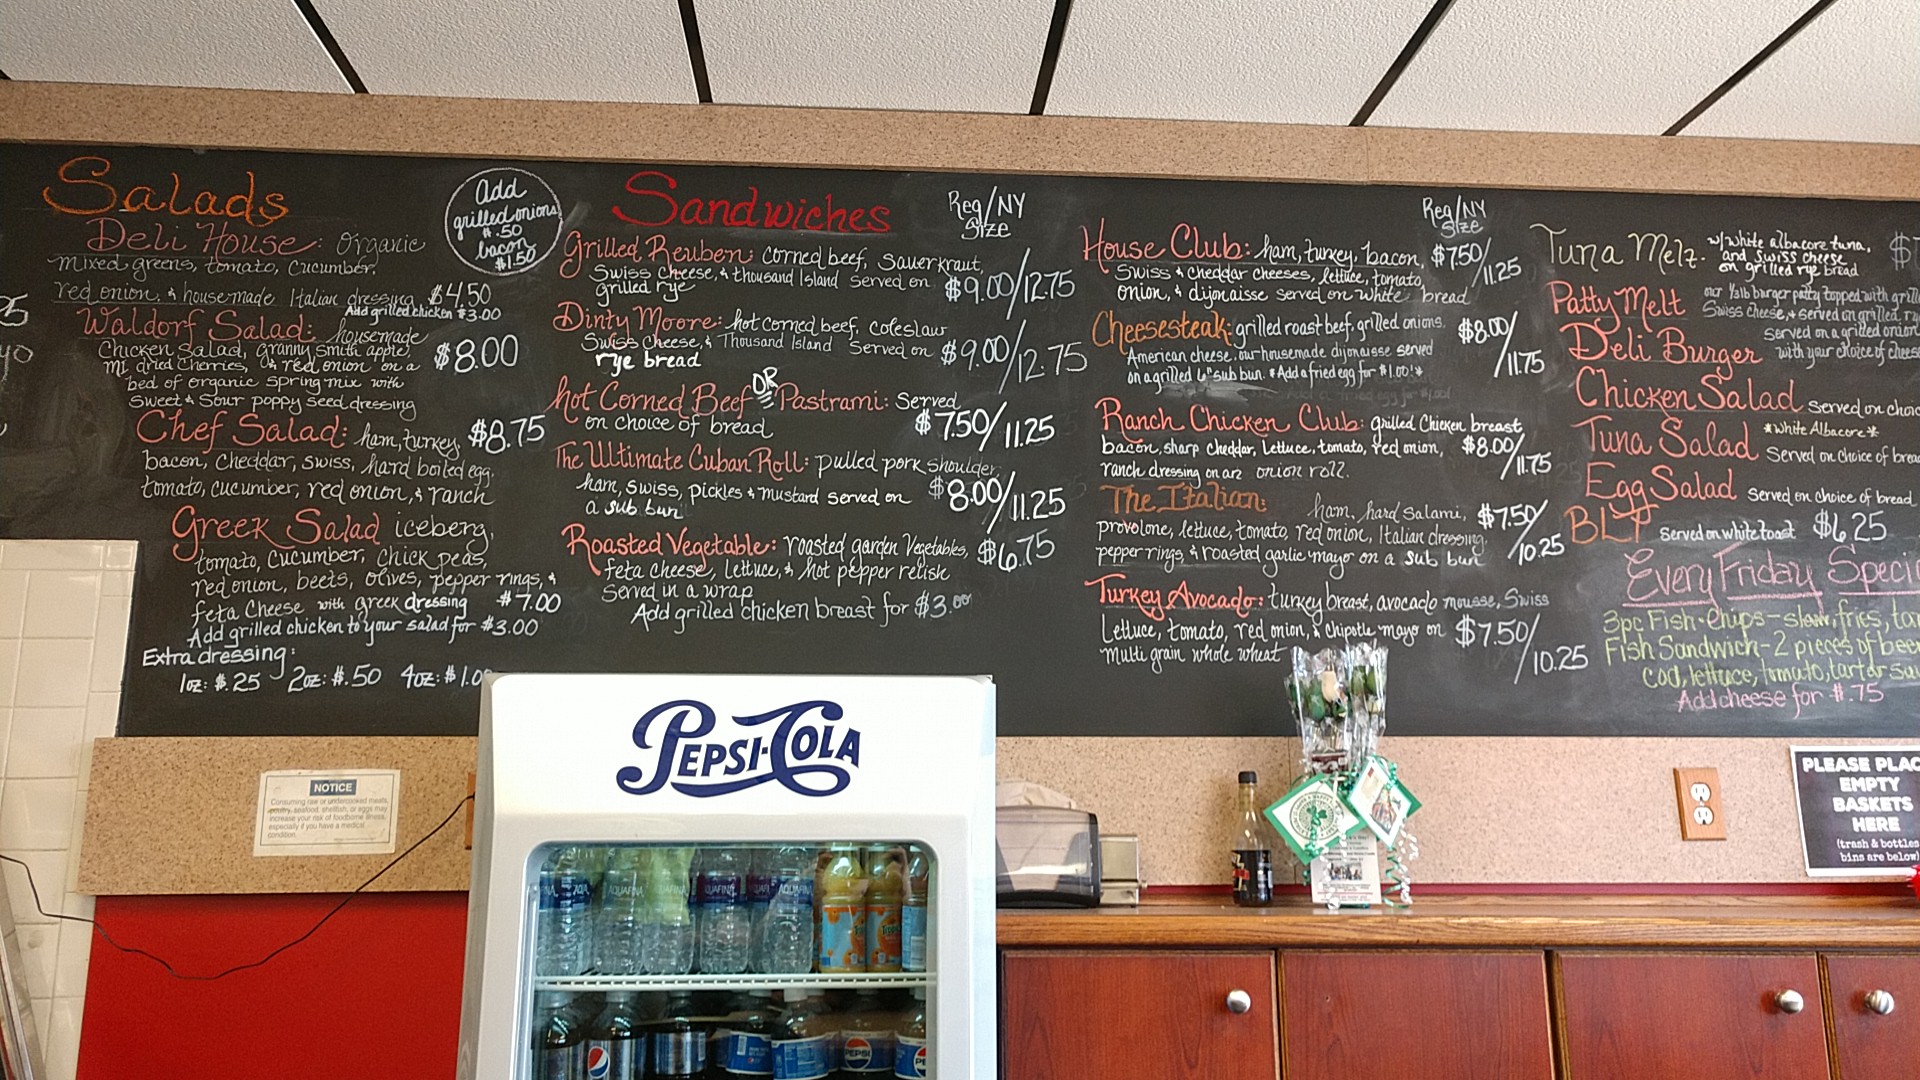 Salads
Add
grilled onions
$.50
bacon
$1.50
Deli House: Organic
mixed greens, tomato, cucumber,
red onion, & housemade Italian dressing $4.50
Add grilled chicken $3.00
Waldorf Salad: housemade
Chicken Salad, granny smith apple, $8.00
MI dried Cherries, & red onion on a
bed of organic spring mix with
Sweet & Sour poppy seed dressing
Chef Salad: ham, turkey, $8.75
bacon, Cheddar, swiss, hard boiled egg,
tomato, cucumber, red onion, & ranch
Greek Salad iceberg,
tomato, cucumber, chick peas,
red onion, beets, olives, pepper rings, &
feta Cheese with greek dressing $7.00
Add grilled chicken to your salad for $3.00
Extra dressing:
1oz: $.25 2oz: $.50 4oz: $1.00
Sandwiches
Reg/NY
Size
Grilled Reuben: corned beef, Sauerkraut,
Swiss Cheese, & thousand Island Served on
grilled rye $9.00/12.75
Dinty Moore: hot corned beef, coleslaw
Swiss Cheese, & Thousand Island Served on
rye bread $9.00/12.75
hot Corned Beef OR Pastrami: Served
on choice of bread $7.50/11.25
The Ultimate Cuban Roll: pulled pork shoulder,
ham, swiss, pickles & mustard served on
a sub bun $8.00/11.25
Roasted Vegetable: roasted garden Vegetables, $6.75
feta cheese, lettuce, & hot pepper relish
Served in a wrap
Add grilled chicken breast for $3.00
Reg/NY
Size
House Club: ham, turkey, bacon, $7.50/11.25
Swiss & cheddar cheeses, lettuce, tomato,
onion, & dijonaisse served on white bread
Cheesesteak: grilled roast beef, grilled onions, $8.00/11.75
American cheese, our housemade dijonaisse served
on a grilled 6" sub bun. *Add a fried egg for $1.00!*
Ranch Chicken Club: grilled Chicken breast
bacon, sharp cheddar, lettuce, tomato, red onion, $8.00/11.75
ranch dressing on an onion roll.
The Italian: ham, hard Salami, $7.50/10.25
provolone, lettuce, tomato, red onion, Italian dressing,
pepper rings, & roasted garlic mayo on a sub bun
Turkey Avocado: turkey breast, avocado mousse, Swiss
Lettuce, tomato, red onion, & Chipotle mayo on $7.50/10.25
multi grain whole wheat
Tuna Melz. w/white albacore tuna,
and swiss cheese
on grilled rye bread
Patty Melt our 1/3lb burger patty topped with
Swiss cheese, & served on grilled
Deli Burger served on a grilled onion
with your choice of
Chicken Salad Served on
Tuna Salad *White Albacore*
Served on choice of
Egg Salad Served on choice of bread
BLT Served on white toast $6.25
Every Friday
3pc Fish-Chips - slaw, fries,
Fish Sandwich - 2 pieces of
cod, lettuce, tomato, tartar
Add cheese for $.75
PEPSI-COLA
NOTICE
Consuming raw or undercooked meats,
poultry, seafood, shellfish, or eggs may
increase your risk of foodborne illness,
especially if you have a medical
condition.
PLEASE PLAC
EMPTY
BASKETS
HERE
(trash & bottles
bins are below)
AQUAFINA
AQUAFINA
PEPSI